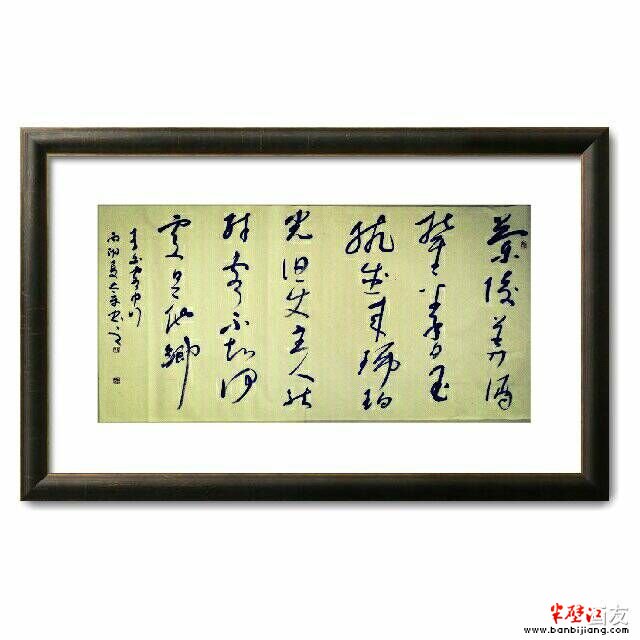 蘭陵美酒
鬱金香玉
碗盛来琥珀
光但使主人能
醉客不知何
處是他鄉
李白客中行
半壁江画友
www.banbijiang.com